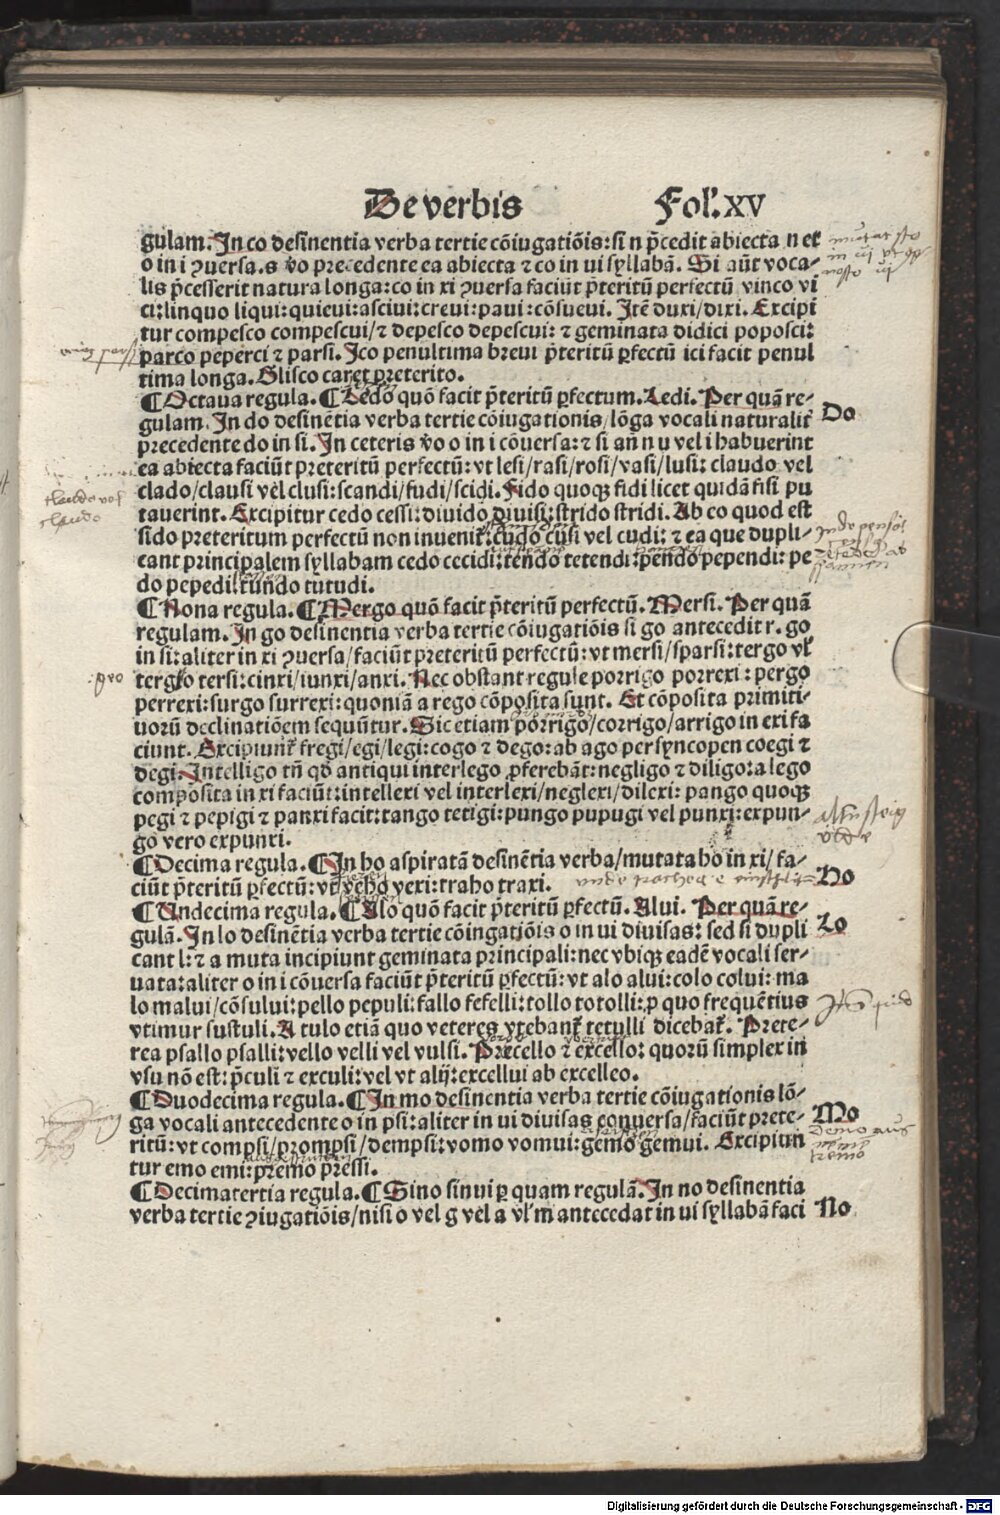 De verbis Fol'.XV
gulam. In co desinentia verba tertie cōiugatiōis: si n p̄cedit abiecta n et
o in i ꝯuersa. s v̄o precedente ea abiecta ⁊ co in ui syllabā. Si aūt voca-
lis p̄cesserit natura longa: co in xi ꝯuersa faciūt p̄teritū perfectū vinco vi
ci: linquo liqui: quieui: asciui: creui: paui: cōsueui. Itē duxi/dixi. Excipi
tur compesco compescui/⁊ depesco depescui: ⁊ geminata didici poposci:
parco peperci ⁊ parsi. Ico penultima breui p̄teritū ꝑfectū ici facit penul
tima longa. Glisco caret preterito.
¶ Octaua regula. ¶ Ledo quō facit p̄teritū ꝑfectum. Ledi. Per quā re-
gulam. In do desinētia verba tertie cōiugationis/lōga vocali naturalit̄ Do
precedente do in si. In ceteris v̄o o in i cōuersa: ⁊ si añ n u vel i habuerint
ea abiecta faciūt preteritū perfectū: vt lesi/rasi/rosi/vasi/lusi: claudo vel
clado/clausi vel clusi: scandi/fudi/scidi. Fido quoqꝫ fidi licet quidā fisi pu
tauerint. Excipitur cedo cessi: diuido diuisi: strido stridi. Ab co quod est
sido preteritum perfectū non inuenit̄: cudo cusi vel cudi: ⁊ ea que dupli-
cant principalem syllabam cedo cecidi: tendo tetendi: pendo pependi: pe
do pepedi: tundo tutudi.
¶ Nona regula. ¶ Mergo quō facit p̄teritū perfectū. Mersi. Per quā
regulam. In go desinentia verba tertie cōiugatiōis si go antecedit r. go
in si: aliter in xi ꝯuersa/faciūt preteritū perfectū: vt mersi/sparsi: tergo vl'
tergeo tersi: cinxi/iunxi/anxi. Nec obstant regule porrigo porrexi: pergo
perrexi: surgo surrexi: quoniā a rego cōposita sunt. Et cōposita primiti-
uorū declinatiōem sequūtur. Sic etiam porrigo/corrigo/arrigo in exi fa
ciunt. Excipiunt̄ fregi/egi/legi: cogo ⁊ dego: ab ago per syncopen coegi ⁊
degi. Intelligo tñ qd antiqui interlego ꝓferebāt: negligo ⁊ diligo: a lego
composita in xi faciūt: intellexi vel interlexi/neglexi/dilexi: pango quoqꝫ
pegi ⁊ pepigi ⁊ panxi facit: tango tetigi: pungo pupugi vel punxi: expun-
go vero expunxi.
¶ Decima regula. ¶ In ho aspiratā desinētia verba/mutata ho in xi/fa-
ciūt p̄teritū ꝑfectū: vt veho vexi: traho traxi. Ho
¶ Undecima regula. ¶ Alo quō facit p̄teritū ꝑfectū. Alui. Per quā re-
gulā. In lo desinētia verba tertie cōingatiōis o in ui diuisas: sed si dupli Lo
cant l: ⁊ a muta incipiunt geminata principali: nec vbiqꝫ eadē vocali ser-
uata: aliter o in i cōuersa faciūt p̄teritū ꝑfectū: vt alo alui: colo colui: ma
lo malui/cōsului: pello pepuli: fallo fefelli: tollo totolli: ꝓ quo frequētius
vtimur sustuli. A tulo etiā quo veteres vtebant̄ tetulli dicebat̄. Prete-
rea psallo psalli: vello velli vel vulsi. Precello ⁊ excello: quorū simplex in
vsu nō est: p̄culi ⁊ exculi: vel vt alij: excellui ab excelleo.
¶ Duodecima regula. ¶ In mo desinentia verba tertie cōiugationis lō-
ga vocali antecedente o in psi: aliter in ui diuisas conuersa/faciūt prete- Mo
ritū: vt compsi/prompsi/dempsi: vomo vomui: gemo gemui. Excipiun
tur emo emi: premo pressi.
¶ Decimatertia regula. ¶ Sino sinui ꝑ quam regulā. In no desinentia
verba tertie ꝯiugatiōis/nisi o vel g vel a vl' m antecedat in ui syllabā faci No
Digitalisierung gefördert durch die Deutsche Forschungsgemeinschaft - DFG